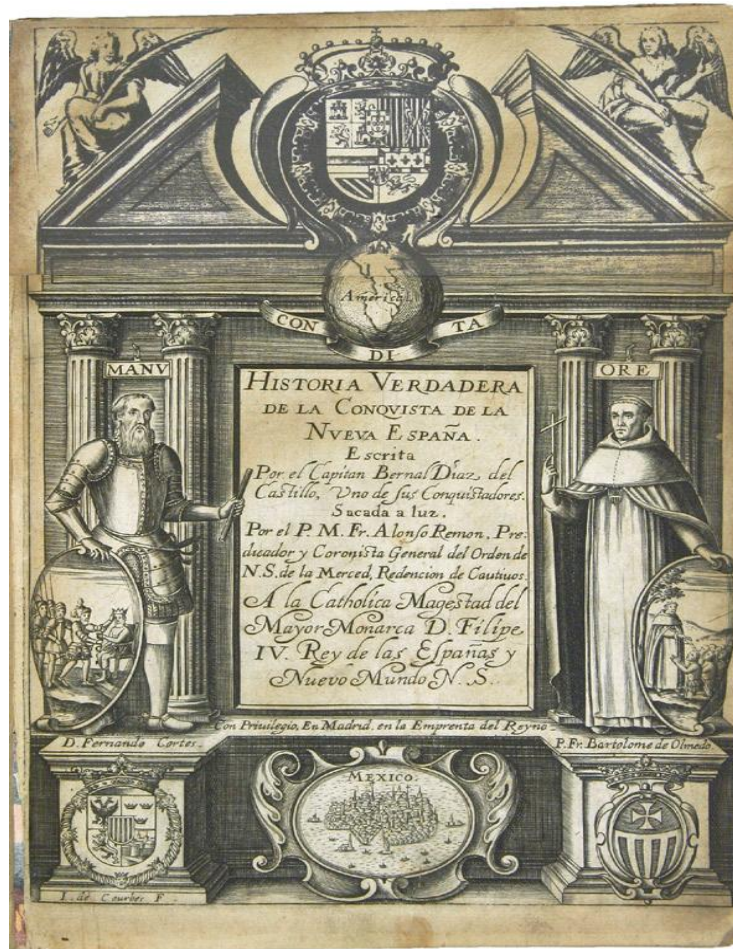 America
CON
DI
TA
MANV
ORE
HISTORIA VERDADERA
DE LA CONQVISTA DE LA
NVEVA ESPAÑA.
Escrita
Por el Capitan Bernal Diaz, del
Castillo, Vno de sus Conquistadores.
Sacada a luz,
Por el P. M. Fr. Alonso Remon, Pre-
dicador y Coronista General del Orden de
N. S. de la Merced, Redencion de Cautivos.
A la Catholica Magestad del
Mayor Monarca D. Filipe
IV. Rey de las Españas y
Nuevo Mundo N. S.
Con Privilegio, En Madrid, en la Emprenta del Reyno
D. Fernando Cortes.
P. Fr. Bartolome de Olmedo.
MEXICO.
I. de Courbes F.